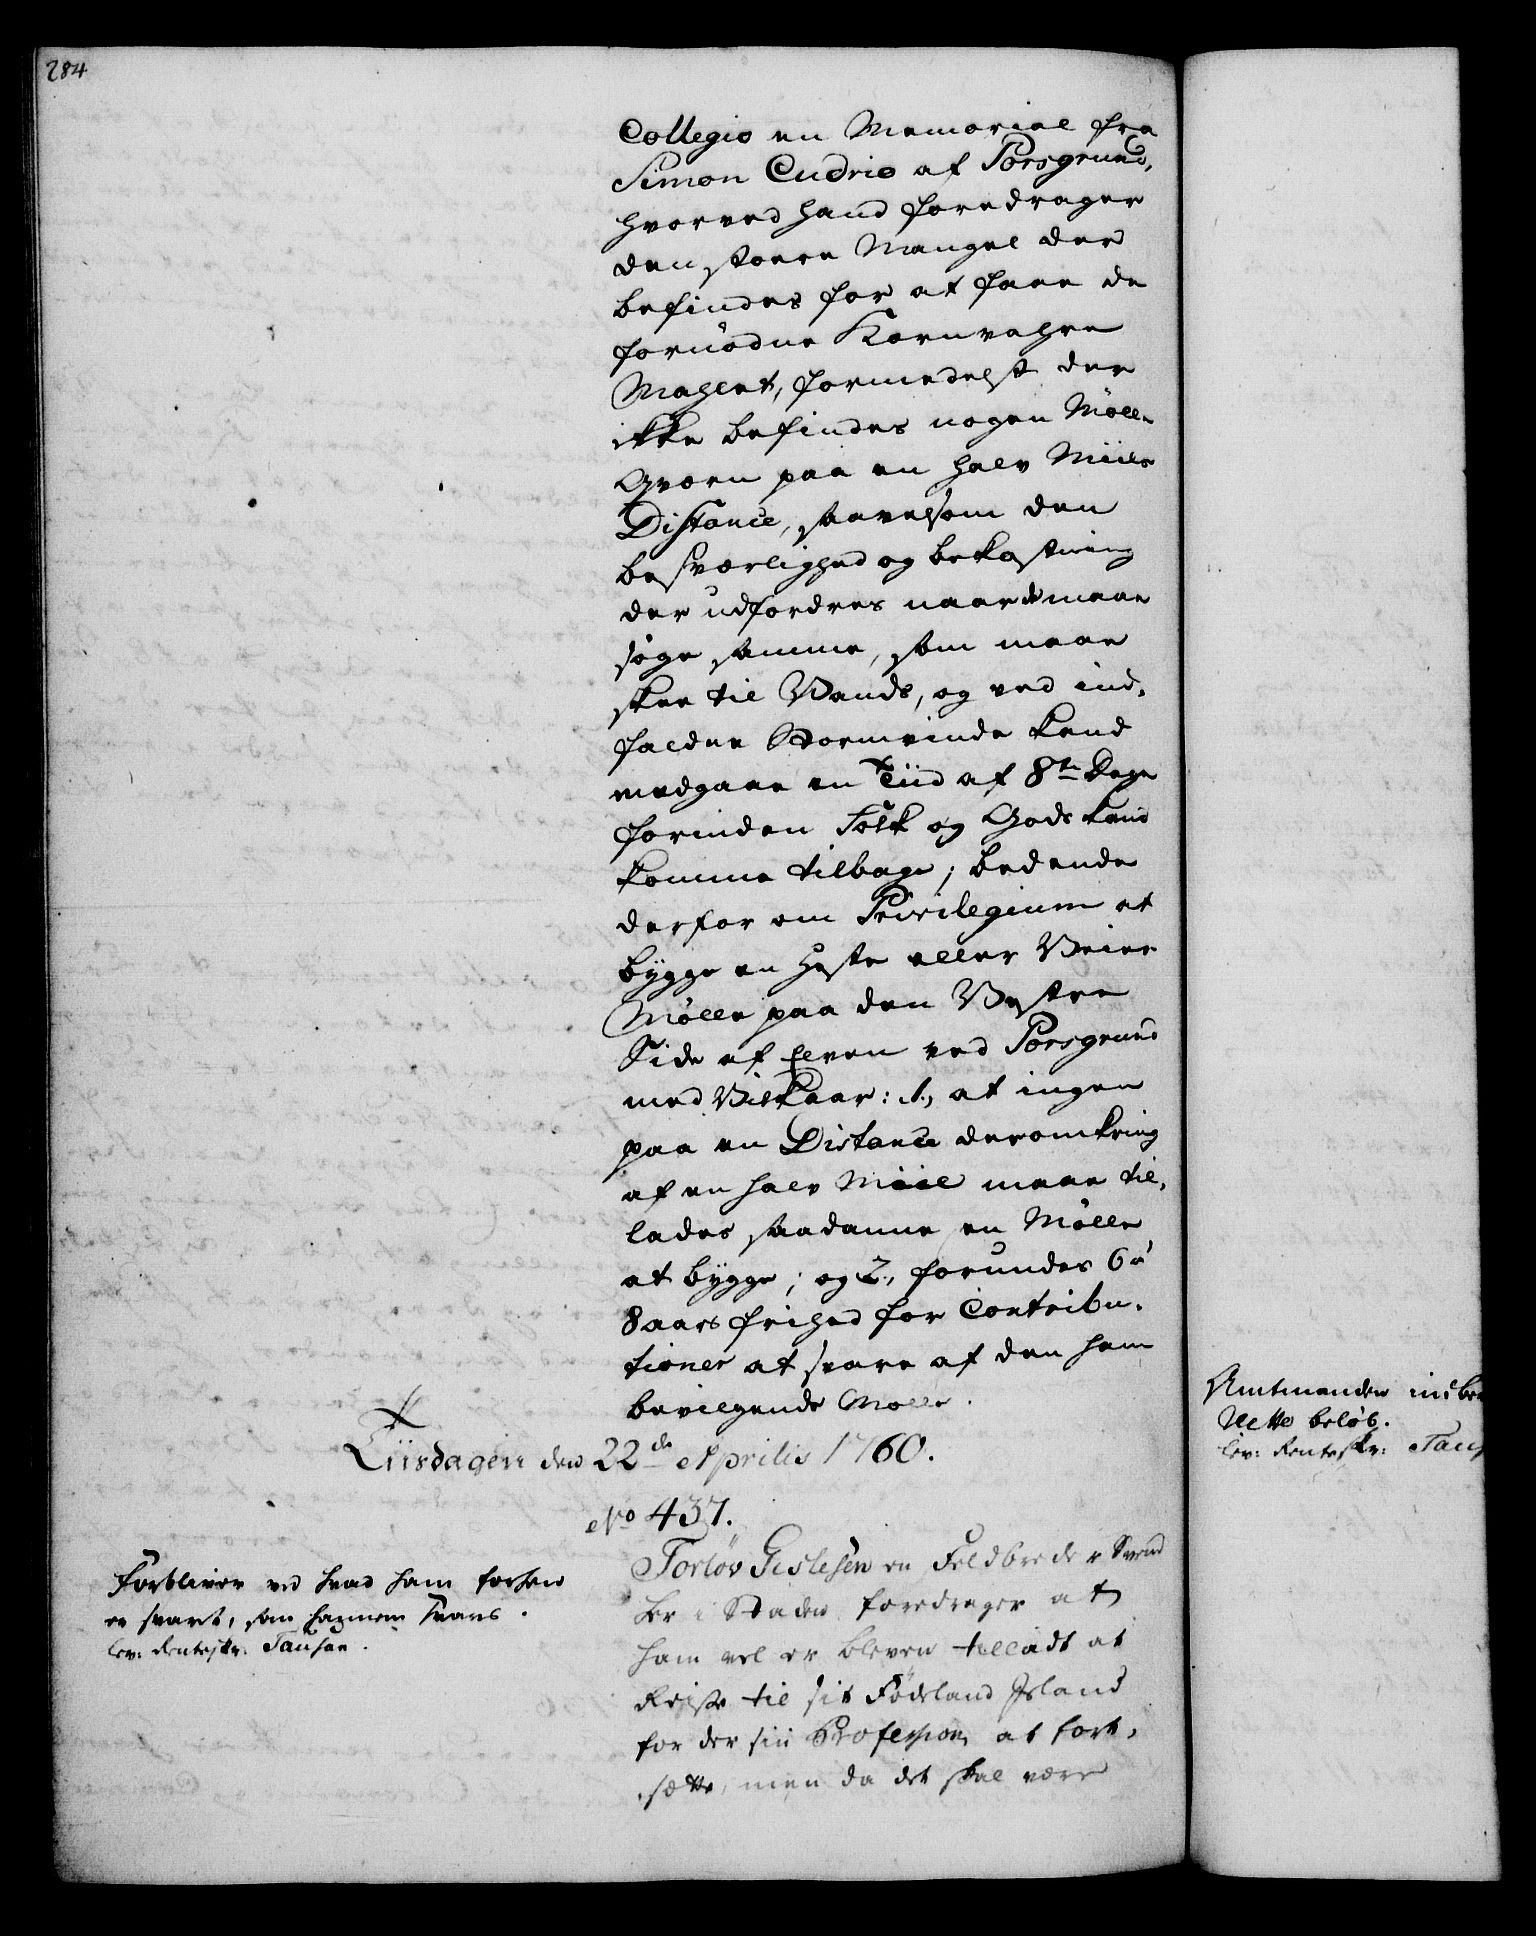 284
Collegio en Memorial fra
Simon Cudrio af Porsgrund,
hvorved hand foredrager
den stoere Mangel der
befindes for at faae de
fornödne Kornvahre
Mahlet, formedelst der
ikke befindes nogen Mölle
Qværn paa en halv Miils
Distance, saavelsom den
besværlighed og bekostning
der udfordres naar de maae
söge samme, som maae
skee til Vands, og ved ind-
faldne Stormvinde kand
medgaae en Tiid af 8te Dage
forinden Folk og Gods kand
komme tilbage; bedende
derfor om Privilegium at
bygge en Heste eller Veier
Mölle paa den Vestre
Side af Elven ved Porsgrund
med Vilkaar: 1, at ingen
paa en Distance deromkring
af en halv Miil maae til-
lades saadanne en Mölle
at bygge; og 2, forundes 6 á
8 aars frihed for Contribu-
tioner at svare af den ham
bevilgende Mölle.
Tiirsdagen den 22de Aprilis 1760.
No 437.
Torlöv Gislesen en Feldbereder Svend
her i Staden foredrager at
ham vel er bleven tilladt at
Reise til sit Födeland Island
for der sin Profession at fort-
sætte, men da det skal være
Forbliver ved hvad ham forhen
er svaret, som hannem svares.
lev: Renteskr: Tausan.
Amtmanden
Nette belöb.
lev: Renteskr: